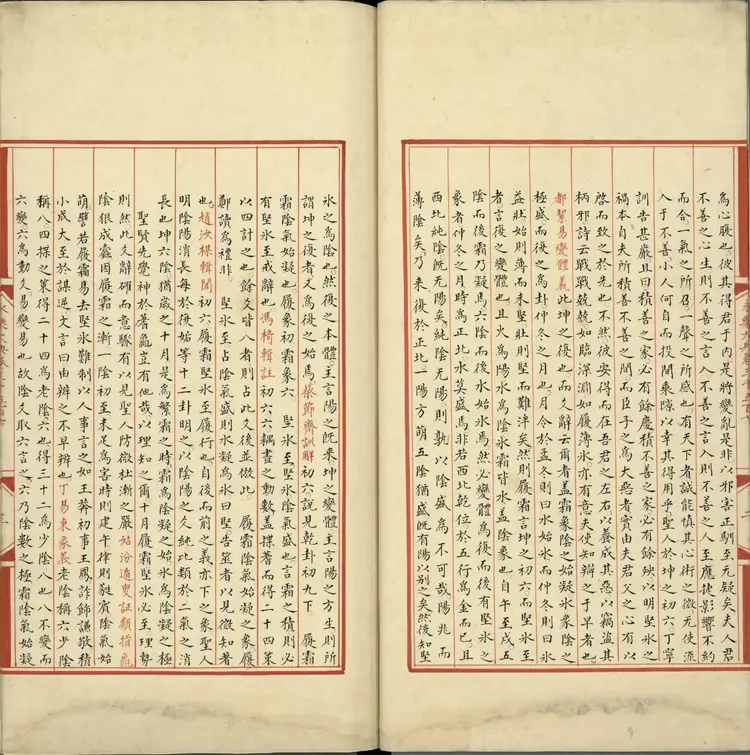 為心腹也彼其得君于内是將變亂是非以邪害正馴至无疑矣夫人君
不善之心生則不善之言入不善之言入則不善之人至應捷影響不約
而合一氣之所召一聲之所感也有天下者誠能慎其心術之微无使流
入于不善小人何自而投間乘隙以幸其得用乎聖人於坤之初六丁寧
訓告甚嚴且曰積善之家必有餘慶積不善之家必有餘殃以明堅氷之
禍本自夫所積善不善之間而臣子之為大惡者實由夫君父之心有以
啓而致之於先也不然彼安得而在吾君之左右以養成其惡以竊盜其
柄邪詩云戰戰兢兢如臨深淵如履薄氷亦有意夫使知辯之于早者也
都絜易變體義此坤之復也而爻辭云爾者盖霜象陰之始凝氷象陰之
極盛而復之為卦仲冬之月也月令於孟冬則曰水始氷而仲冬則曰氷
益壯始則薄而未堅壯則堅而難泮矣然則履霜言坤之初六而堅氷至
者言復之變體也且火為陽水為陰氷霜皆水盖陰象也自午至戌五
陰而後霜乃凝焉六陰而後水始氷焉然必變體為復而後有堅氷之
象者仲冬之月時為正北氷莫盛焉非若西北乾位於五行為金而已且
西北純陰旣无陽矣純陰无陽則孰以陰盛為不可哉陽兆而
薄陰矣乃來復於正北一陽方萌五陰猶盛旣有陽以别之矣然後知堅
氷之為陰也然復之本體主言陽之旣來坤之變體主言陽之方生則所
謂坤之復者又為復之始焉蔡節齋訓解初六說見乾卦初九下履霜
霜陰氣始凝也履象初霜象六堅氷至堅氷陰氣盛也言霜之積則必
有堅氷至戒辭也馮椅輯註初六六耦畫之動數盖揲蓍而得二十四策
以四計之也餘爻皆八者則占此爻後並倣此履霜陰氣始凝之象履
鄭讀為禮非堅氷至占陰氣盛則水凝為氷曰堅告筮者以見微知著
也趙汝楳輯聞初六履霜堅氷至履行也自後而前之義亦下之象聖人
明陰陽消長每於復姤等十二卦明之以陰陽之爻純比類於二氣之消
長也坤六陰猶歲之十月是為繁霜之時霜為陰凝之始氷為陰凝之極
聖賢先覺神於蓍龜豈有他哉以理知之爾十月履霜堅氷必至理勢
則然此爻辭確而意賅有以見聖人防微杜漸之嚴姑汾遁叟証類指龜
陰狠成蠱因履霜之漸一陰初至未足為害時則建午律則蕤賓陰氣始
萌譬若履霜易去堅氷難制以人事言之如王莽初事王鳳詐飾謙敬積
小成大至於謀逆文言曰由辨之不早辨也丁易東象義老陰稱六少陰
稱八四揲之策得二十四為老陰六也得三十二為少陰八也八不變而
六變六為動爻易變易也故陰爻取六言之六乃陰數之極霜陰氣始凝